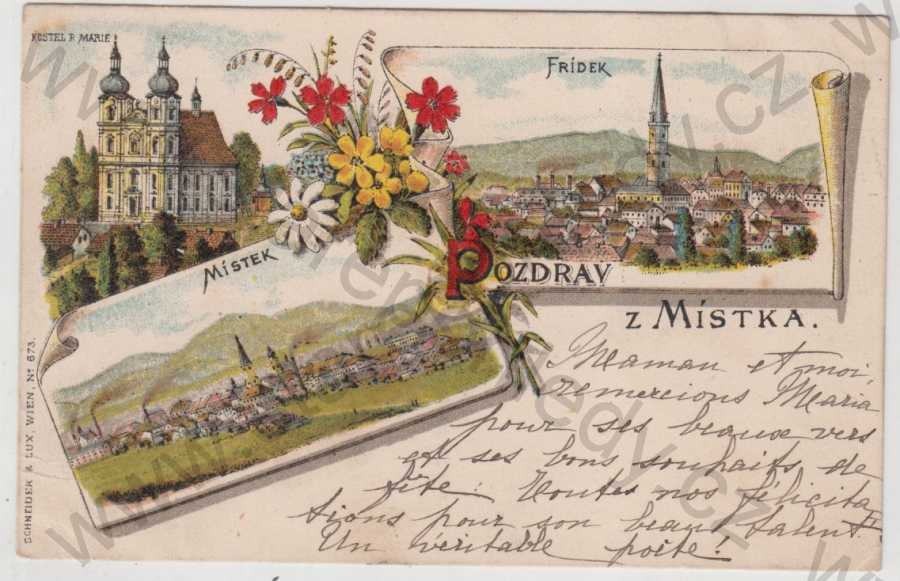 KOSTEL P. MARIE
FRÍDEK
MÍSTEK
POZDRAV
Z MÍSTKA.
Maman et moi,
remercions Maria
pour ses beaux vers
et ses bons souhaits de
fête: Toutes nos félicita
tions pour son beau talent
Un véritable poète!
SCHNEIDER & LUX, WIEN, No 673.